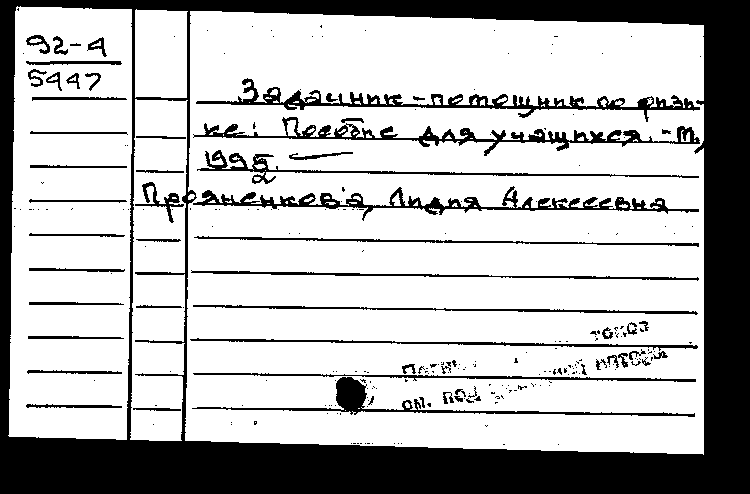 92-4
5447
Задачник-помощник по физи-
ке: Пособие для учащихся. - М.,
1992.
Прояненкова, Лидия Алексеевна
токоз
см. под